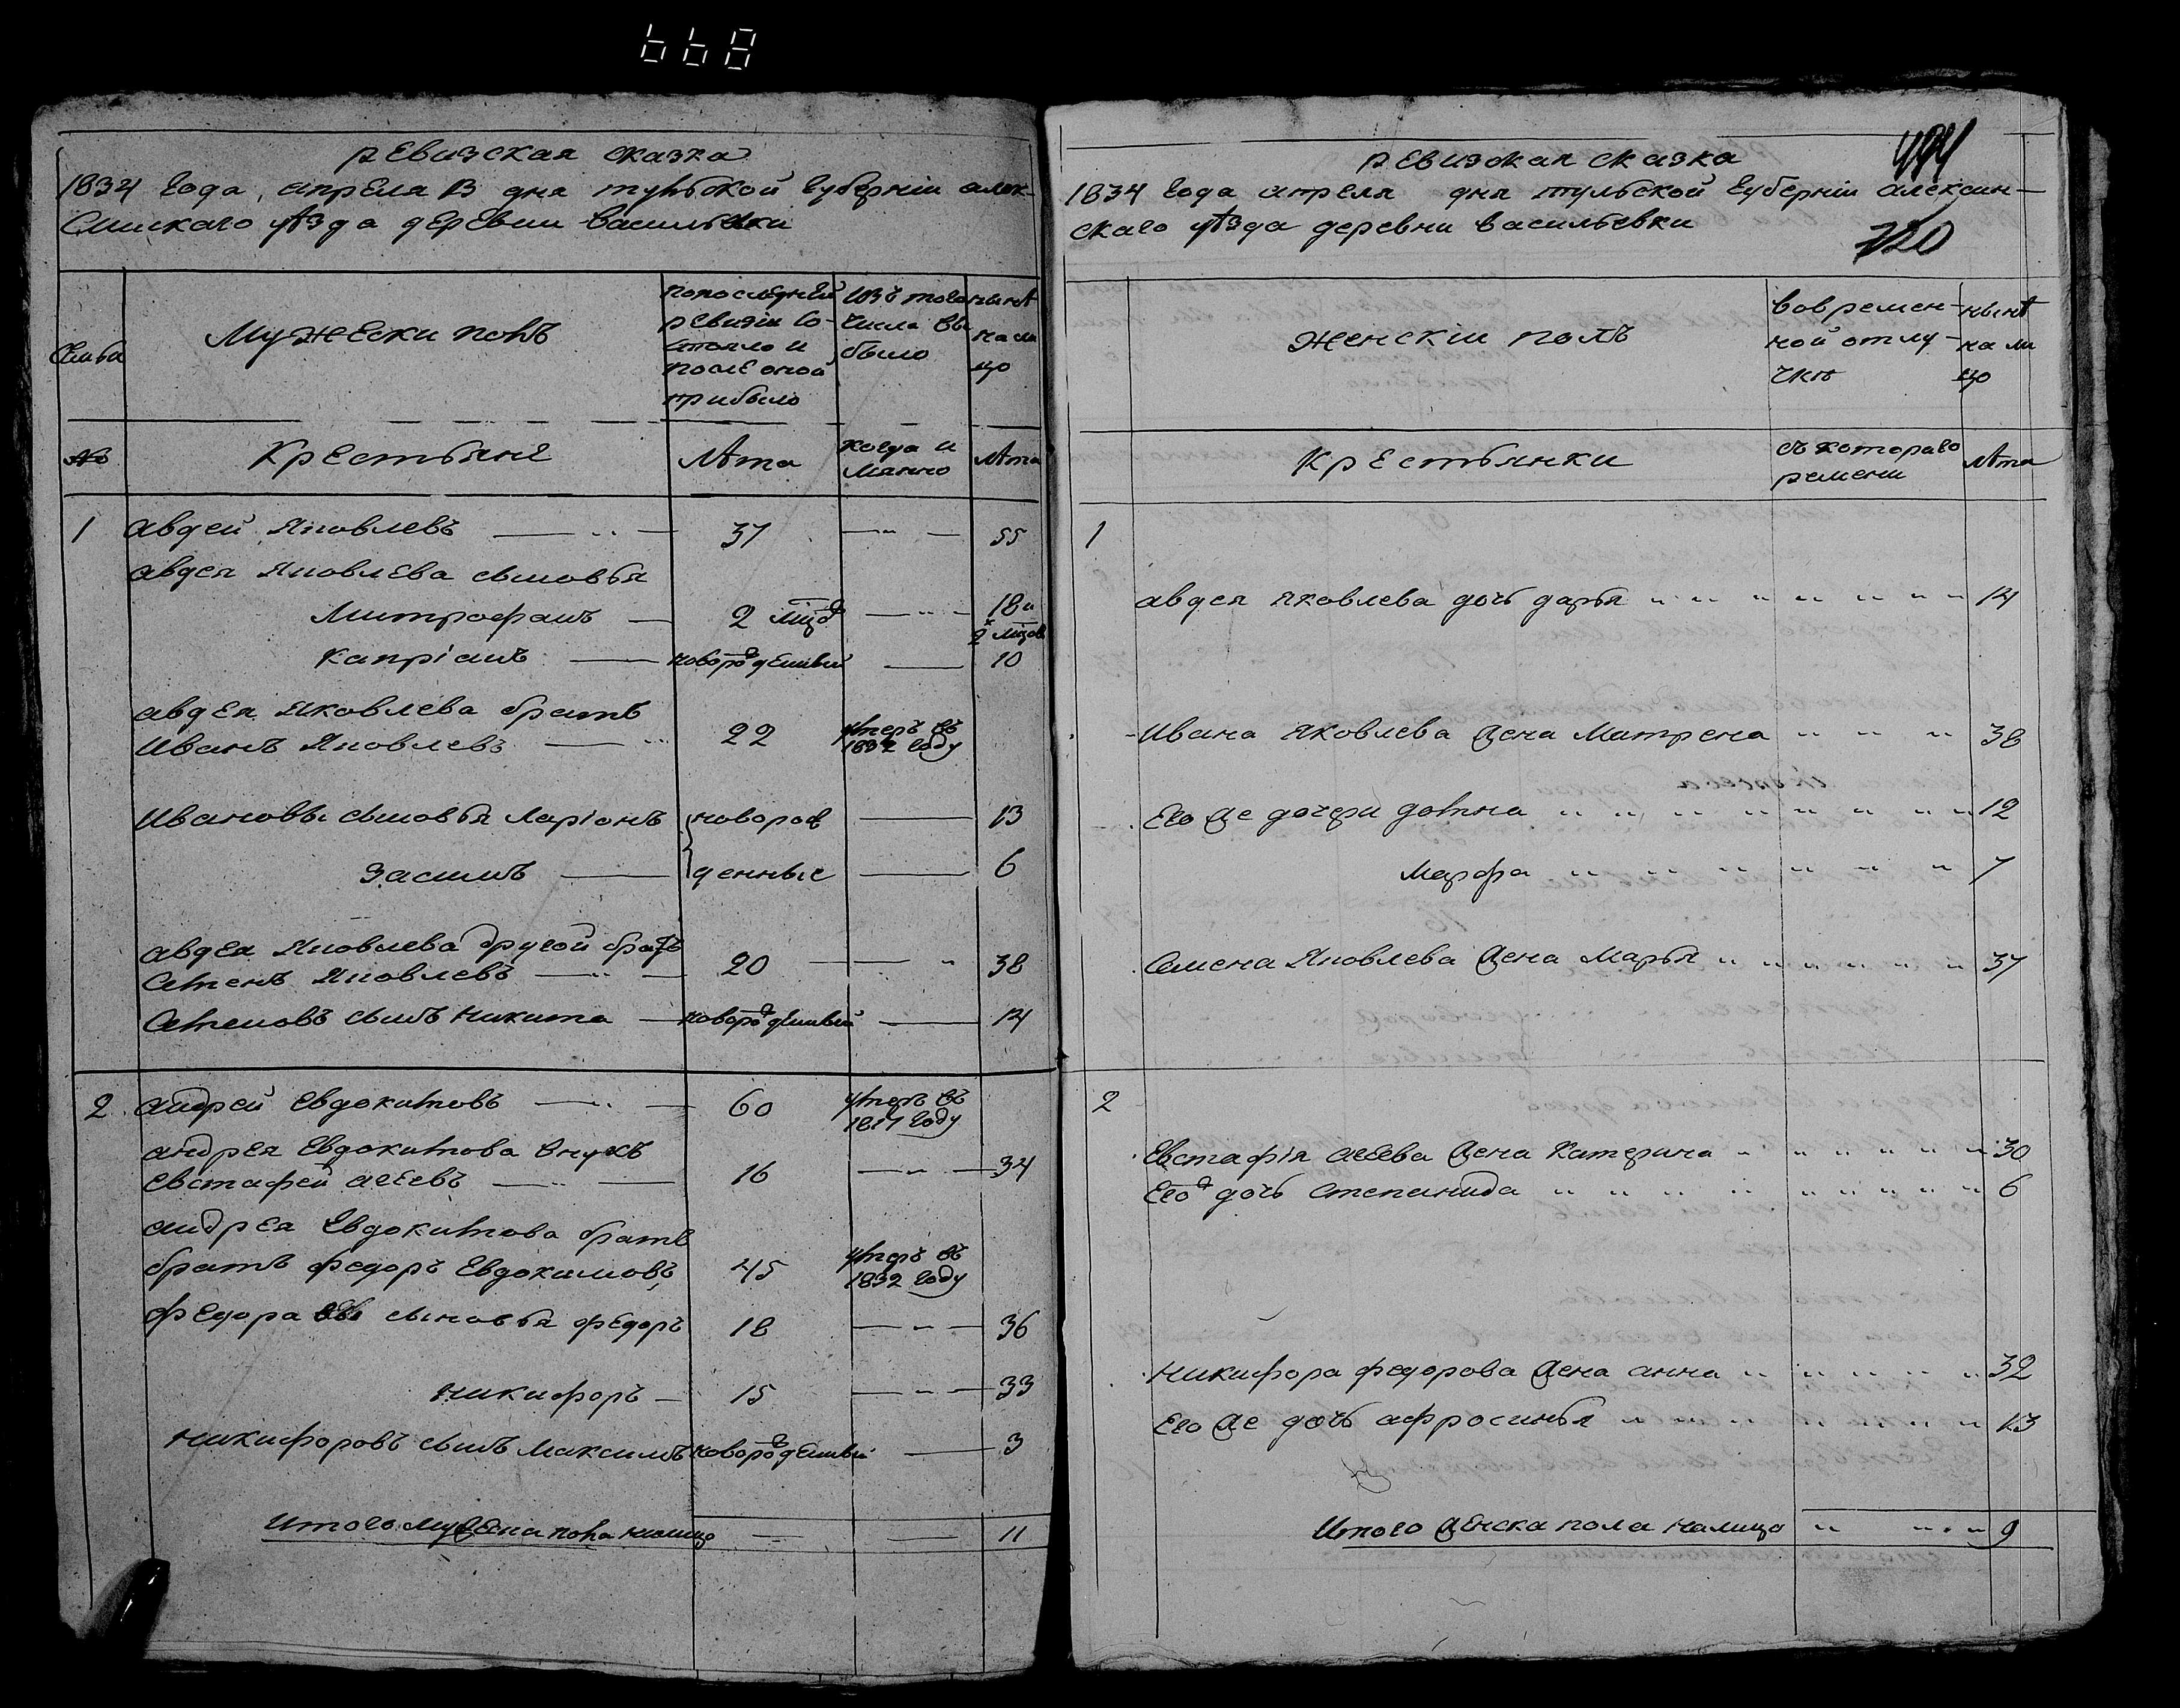 668
ревизская сказка
1834 года, апреля 13 дня тульской губернiи алек-
синскаго уѣзда деревни васильевки
Семьи
Мужески полъ
попоследней
ревизiи со-
стояло и
после оной
прибыло
изъ того
числа вы
было
нынѣ
на ли
цо
№
Крестьяне
лѣта
когда и
лѣта
1 авдей Яковлевъ 37 55
авдея Яковлева сыновья
Митрофанъ 2 мцд 18 и 2х мцов
капрiанъ новорожденный 10
авдея Яковлева братъ
Иванъ Яковлевъ 22 умеръ въ 1832 году
Ивановы сыновья Ларiонъ новорож 13
Засимъ денные 6
авдея Яковлева другой братъ
Семенъ Яковлевъ 20 38
Семеновъ сынъ никита новорожденный 14
2 андрей евдокимовъ 60 умеръ въ 18 году
андрея Евдокимова внукъ
евстафей агеевъ 16 34
андрея Евдокимова братъ
братъ федоръ Евдокимовъ 45 умеръ въ 1832 году
федора сыновья федоръ 18 36
никифоръ 15 33
никифоровъ сынъ Максимъ новорожденный 3
Итого мужеска пола налицо 11
ревизская сказка
494
1834 года апреля дня тульской губернiи алексин-
скаго уѣзда деревни васильевки
720
женскiи полъ
вовремен-
ной отлу-
чкѣ
нынѣ
на ли
цо
Крестьянки
съ котораго
ремени
лѣта
1
авдея яковлева дочь дарья 14
Ивана яковлева жена Матрена 38
Его же дочери 12
Марфа 7
Семена Яковлева жена Марья 37
2
Евстафiя агеева жена Катерина 30
Его ж дочь степанида 6
никифора федорова жена анна 32
Его же дочь афросинья 13
Итого женска пола налицо 9